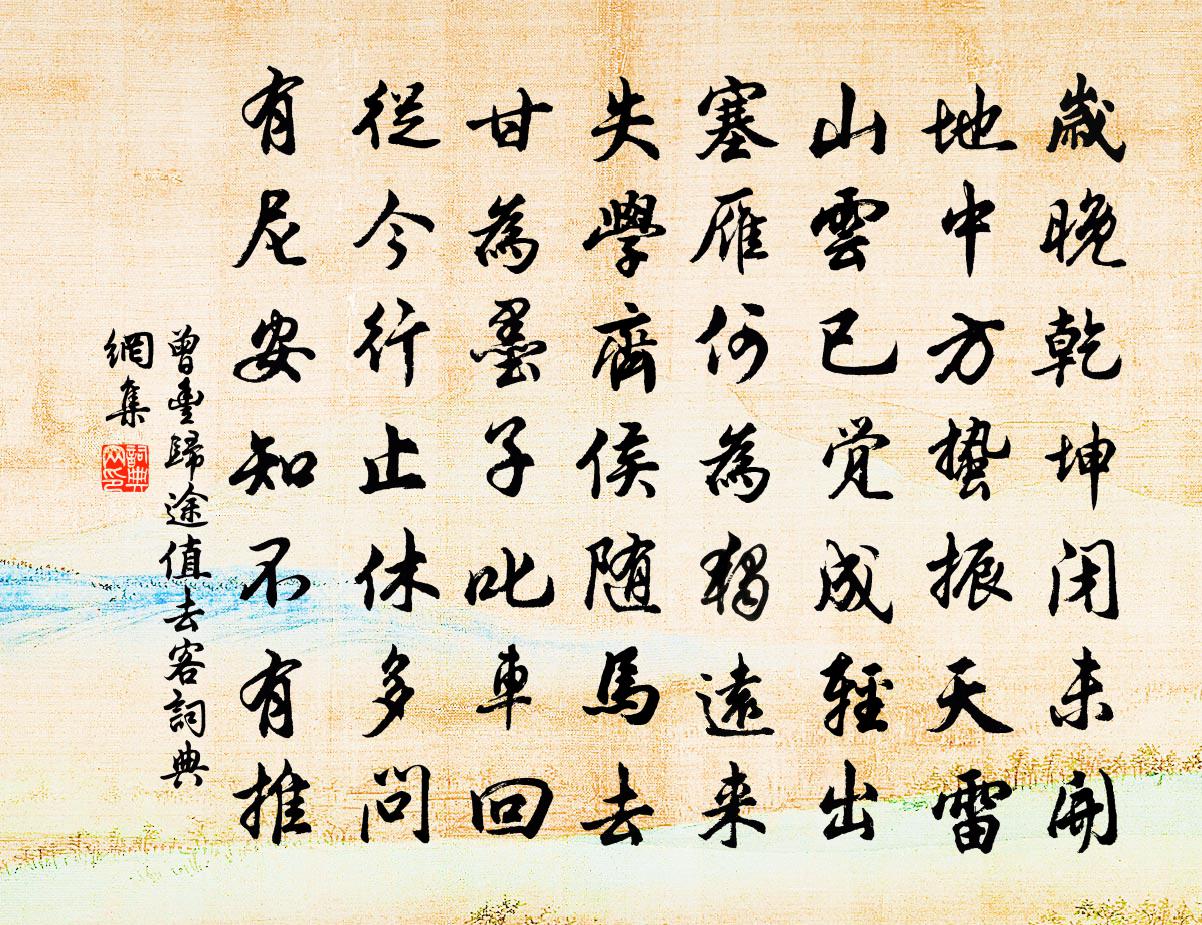 歲晚乾坤闭未開
地中方蟄振天雷
山雲已覺成輕出
塞雁何為獨遠来
失學齊侯随馬去
甘為墨子叱車回
從今行止休多問
有尼安知不有推
曾豐歸途值去客詞典
網集
詞典